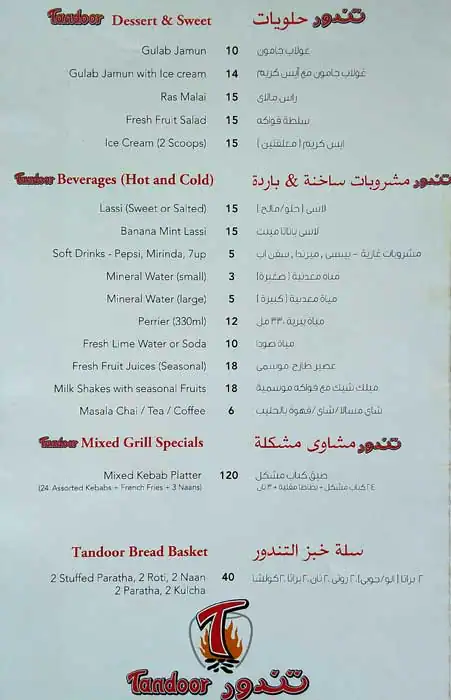 Tandoor Dessert & Sweet تندور حلويات
Gulab Jamun 10 غولاب جامون
Gulab Jamun with Ice cream 14 غولاب جامون مع آيس كريم
Ras Malai 15 راس مالاي
Fresh Fruit Salad 15 سلطة فواكه
Ice Cream (2 Scoops) 15 ايس كريم (معلقتين)
Tandoor Beverages (Hot and Cold) تندور مشروبات ساخنة & باردة
Lassi (Sweet or Salted) 15 لاسي (حلو/مالح)
Banana Mint Lassi 15 لاسي بنانا مينت
Soft Drinks - Pepsi, Mirinda, 7up 5 مشروبات غازية - بيبسي، ميرندا، سفن اب
Mineral Water (small) 3 مياه معدنية (صغيرة)
Mineral Water (large) 5 مياة معدنية (كبيرة)
Perrier (330ml) 12 مياة بيرية ٣٣٠ مل
Fresh Lime Water or Soda 10 مياة صودا
Fresh Fruit Juices (Seasonal) 18 عصير طازج موسمي
Milk Shakes with seasonal Fruits 18 ميلك شيك مع فواكه موسمية
Masala Chai / Tea / Coffee 6 شاي مسالا/شاي/قهوة بالحليب
Tandoor Mixed Grill Specials تندور مشاوى مشكلة
Mixed Kebab Platter 120 كباب مشكل
(24 Assorted Kebabs + French Fries + 3 Naans) ٢٤ كباب مشكل + بطاطا مقلية + ٣ نان
Tandoor Bread Basket سلة خبز التندور
2 Stuffed Paratha, 2 Roti, 2 Naan 40 ٢ براتا (الو/جوبي)، ٢ روتي، ٢ نان، ٢ براتا، ٢ كولشا
2 Paratha, 2 Kulcha
T
Tandoor تندور